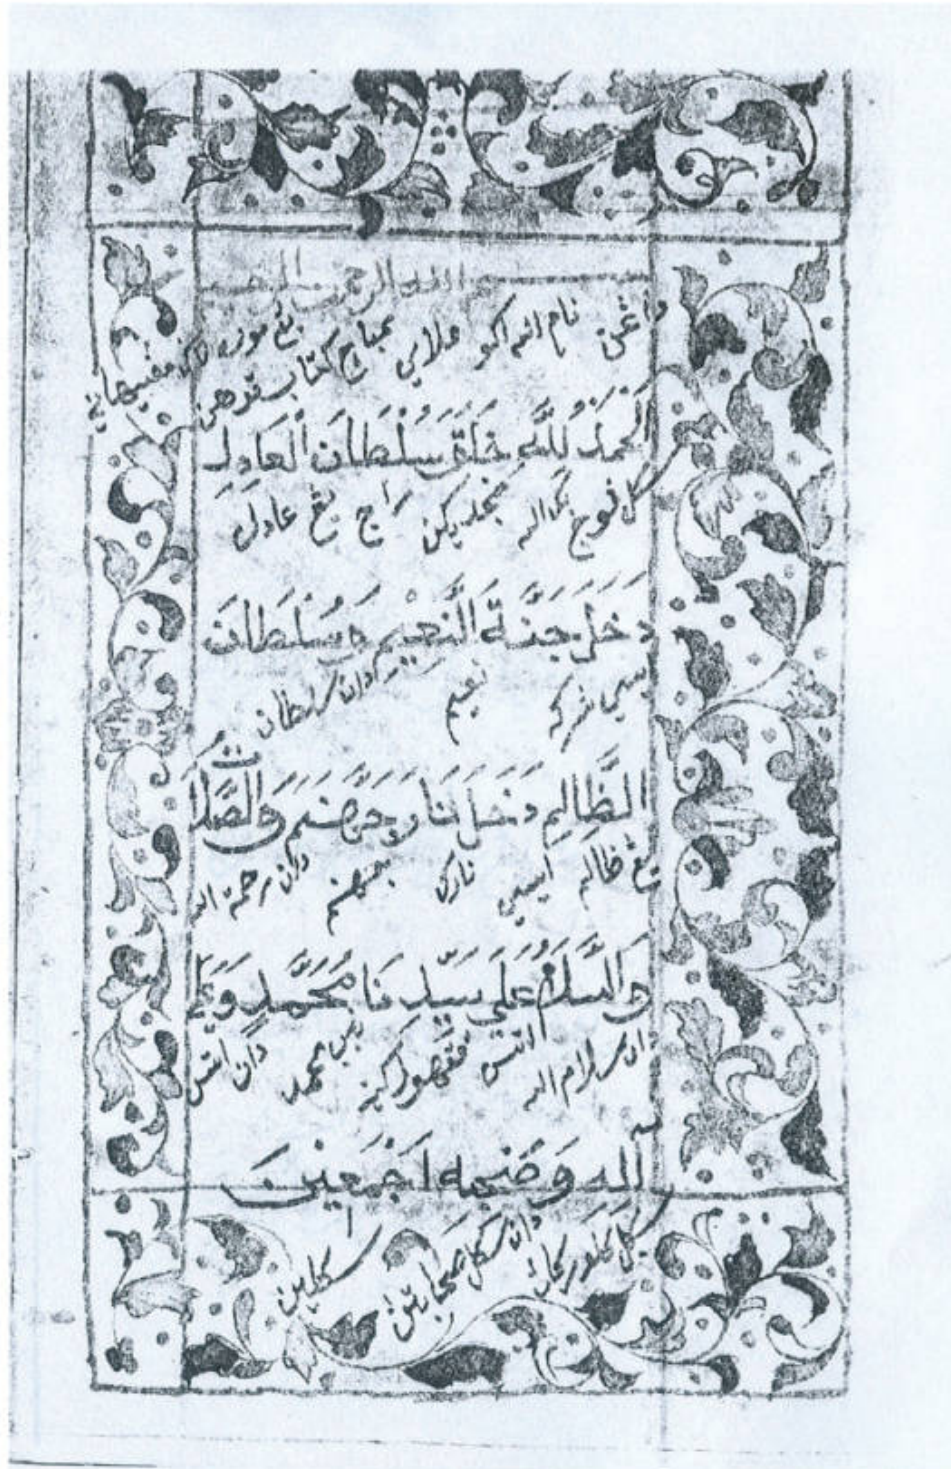 الله الرحمن الرحيم
دا ڠن نام الله اكو ممباچ كتاب يڠ موره
اَلْحَمْدُ لِلّٰهِ خَلَقَ سُلْطَانَ الْعَادِلِ
سكل ڤوج بڬ الله منجديكن راج يڠ عادل
دَخَلَ جَنَّةَ النَّعِيْمِ وَسُلْطَانَ
نعيم دان سلطان
الظَّالِمِ دَخَلَ نَارَ جَهَنَّمَ وَالصَّلَاةُ
يڠ ظالم ايسي نارك جهنم دان رحمة الله
وَالسَّلَامُ عَلَى سَيِّدِنَا مُحَمَّدٍ وَعَلَى
دان سلام الله اتس ڤڠهولو كيت نبي محمد دان اتس
اله وَصَحْبِهِ اَجْمَعِيْنَ
سكل كلورڬاڽ دان سكل صحابتڽ سكلين